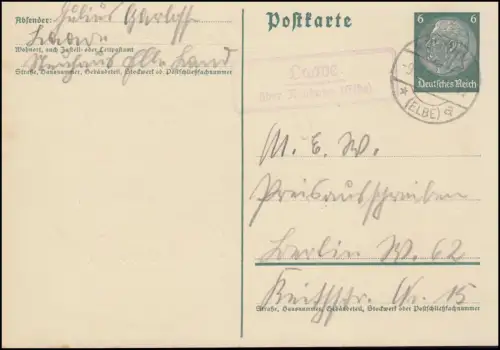 Absender: Julius
Laave
Wohnort, auch Zustell- oder Leitpostamt
Neuhaus Elbe Land
Straße, Hausnummer, Gebäudeteil, Stockwerk od. Postschließfachnummer
Postkarte
6 6
Deutsches Reich
(ELBE) a
Laave
über Neuhaus (Elbe)
M. E. W.
Preisausschreiben
Berlin W. 62
Keithstr. Nr. 15
Straße, Hausnummer, Gebäudeteil, Stockwerk oder Postschließfachnummer